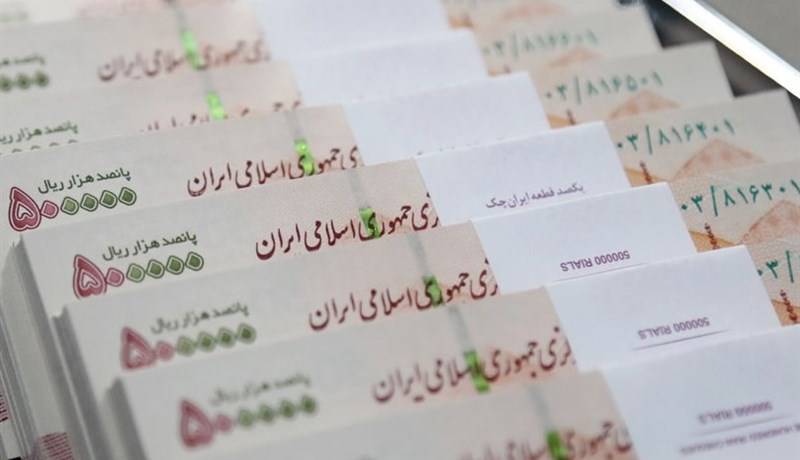 جمهوری اسلامی ایران
۰۲/۸۱۶۶۰۱
پانصد هزار ریال
۰۳/۸۱۶۵۰۱
۰۳/۸۱۶۴۰۱
پانصد هزار ریال
۵۰۰۰۰۰
جمهوری اسلامی ایران
یکصد قطعه ایران چک
۰۳/۸۱۶۳۰۱
پانصد هزار ریال
۵۰۰۰۰۰
جمهوری اسلامی ایران
500000 RIALS
پانصد هزار ریال
۵۰۰۰۰۰
جمهوری اسلامی ایران
500000 RIALS
پانصد هزار ریال
۵۰۰۰۰۰
جمهوری اسلامی ایران
500000 RIALS